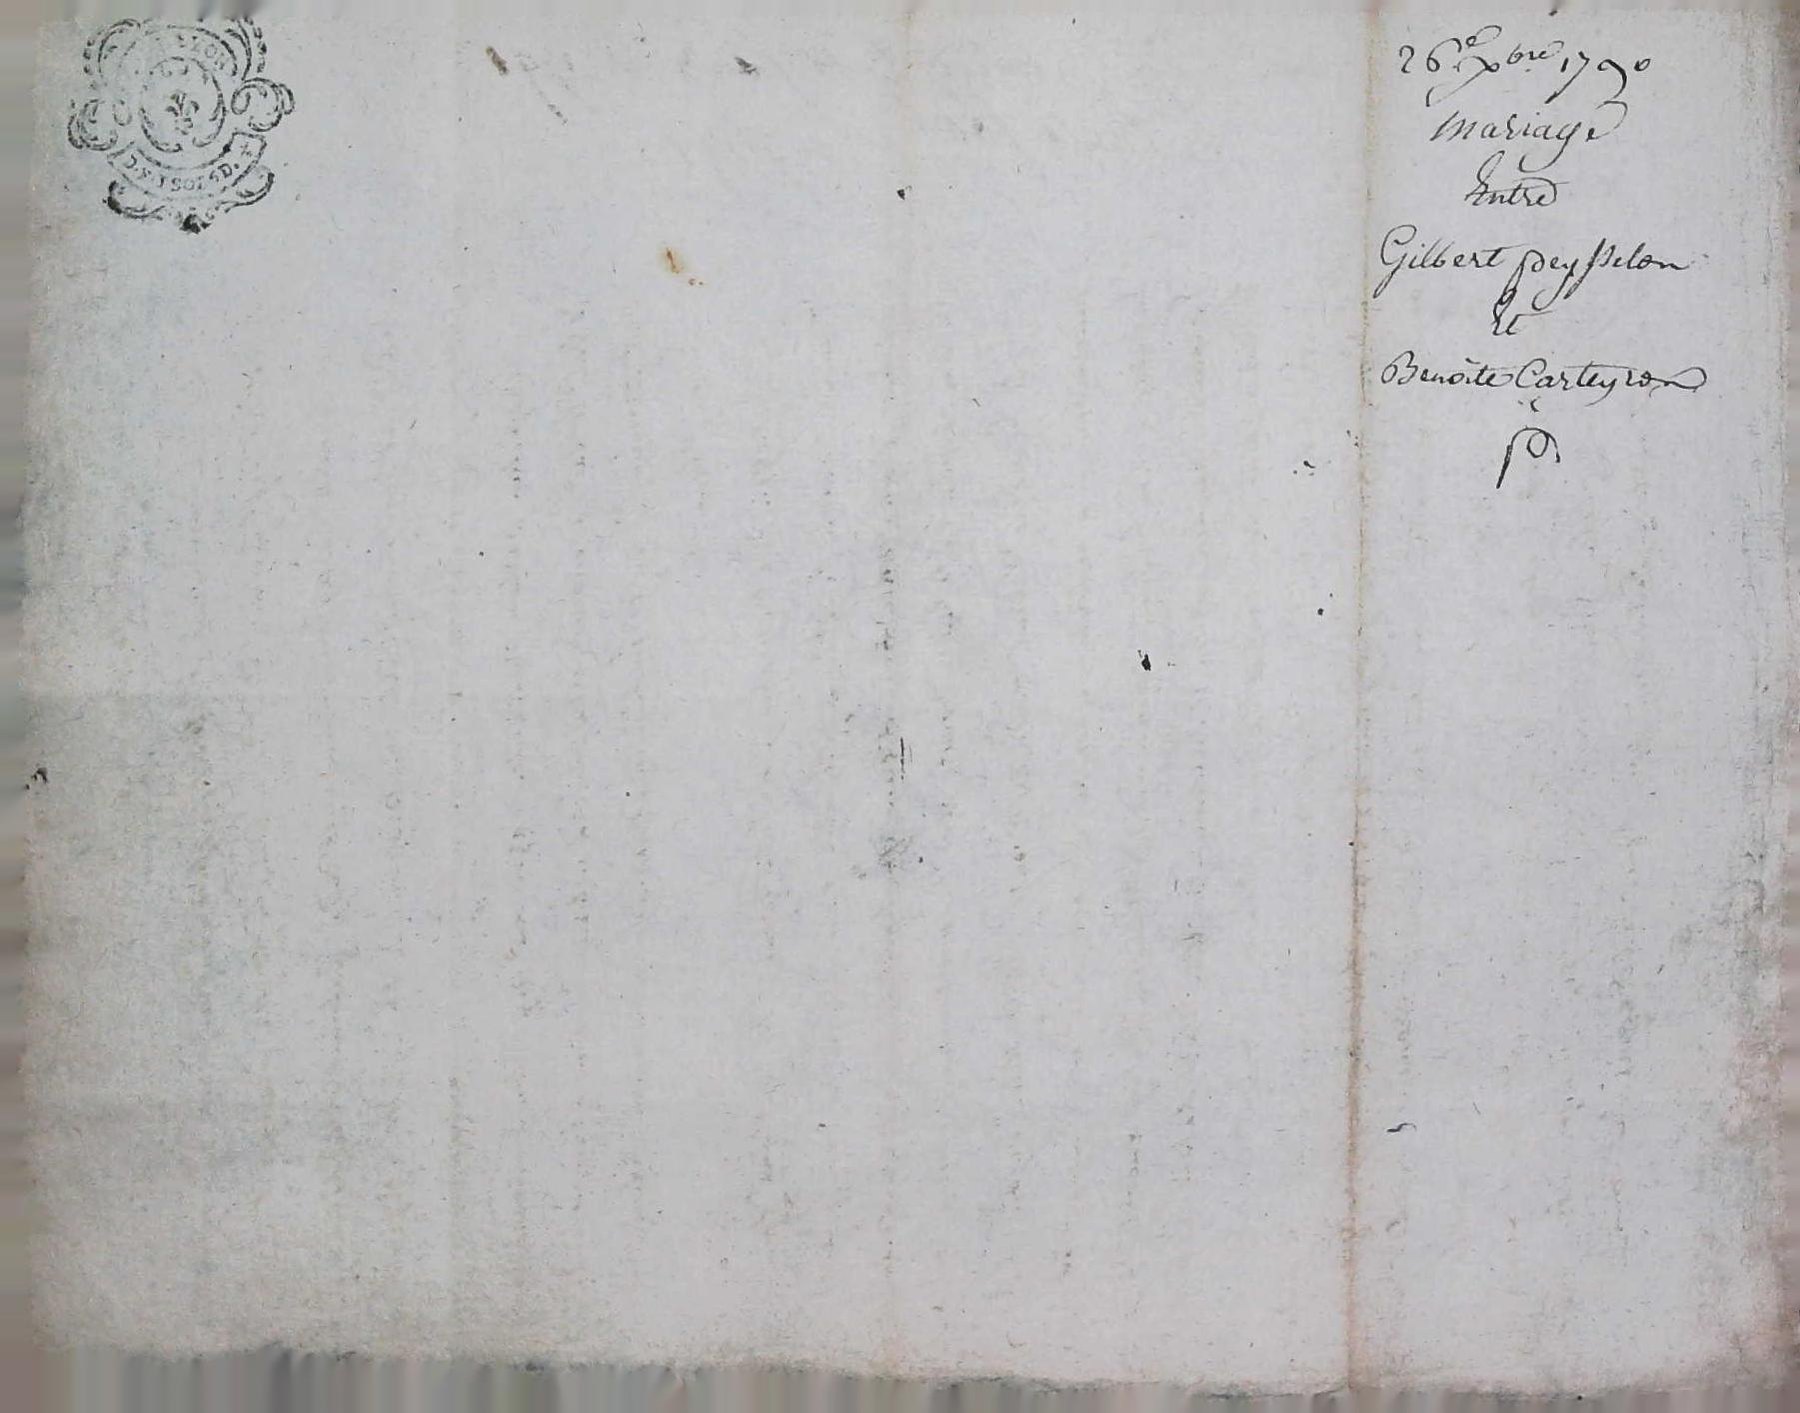 D.F. 1 SOL 6 D.
26e Xbre 1790
Mariage
Entre
Gilbert peysselon
Et
Benoîte Carteyron